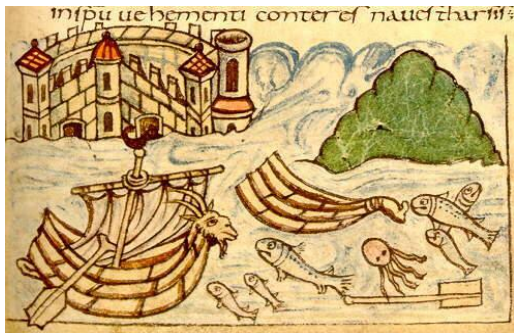 inspū uehementi conteres naues tharsis: